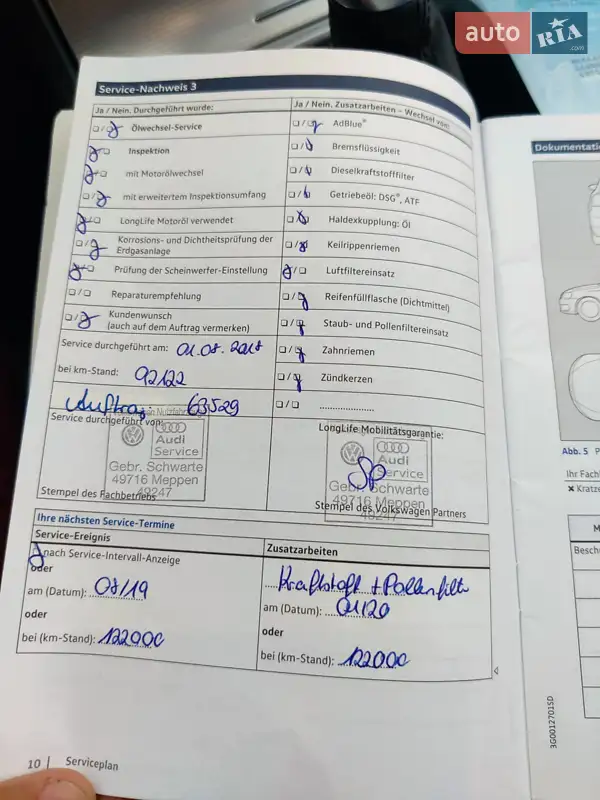 auto RIA .com
Service-Nachweis 3
Ja / Nein. Durchgeführt wurde:
Ölwechsel-Service
Inspektion
mit Motorölwechsel
mit erweitertem Inspektionsumfang
LongLife Motoröl verwendet
Korrosions- und Dichtheitsprüfung der
Erdgasanlage
Prüfung der Scheinwerfer-Einstellung
Reparaturempfehlung
Kundenwunsch
(auch auf dem Auftrag vermerken)
Service durchgeführt am: 01.08.2018
bei km-Stand: 92122
Auftrag 63529
Service durchgeführt von:
Audi
Service
Gebr. Schwarte
49716 Meppen
49247
Stempel des Fachbetriebs
Ja / Nein. Zusatzarbeiten – Wechsel von:
AdBlue®
Bremsflüssigkeit
Dieselkraftstofffilter
Getriebeöl: DSG®, ATF
Haldexkupplung: Öl
Keilrippenriemen
Luftfiltereinsatz
Reifenfüllflasche (Dichtmittel)
Staub- und Pollenfiltereinsatz
Zahnriemen
Zündkerzen
.....................
LongLife Mobilitätsgarantie:
Audi
Service
Gebr. Schwarte
49716 Meppen
49247
Stempel des Volkswagen Partners
Ihre nächsten Service-Termine
Service-Ereignis
nach Service-Intervall-Anzeige
oder
am (Datum): 08/19
oder
bei (km-Stand): 122000
Zusatzarbeiten
Kraftstoff + Pollenfilter
am (Datum): 01/20
oder
bei (km-Stand): 122000
10 | Serviceplan
Dokumentati
Abb. 5
Ihr Fach
✖ Kratze
Besch
3G0012701SD